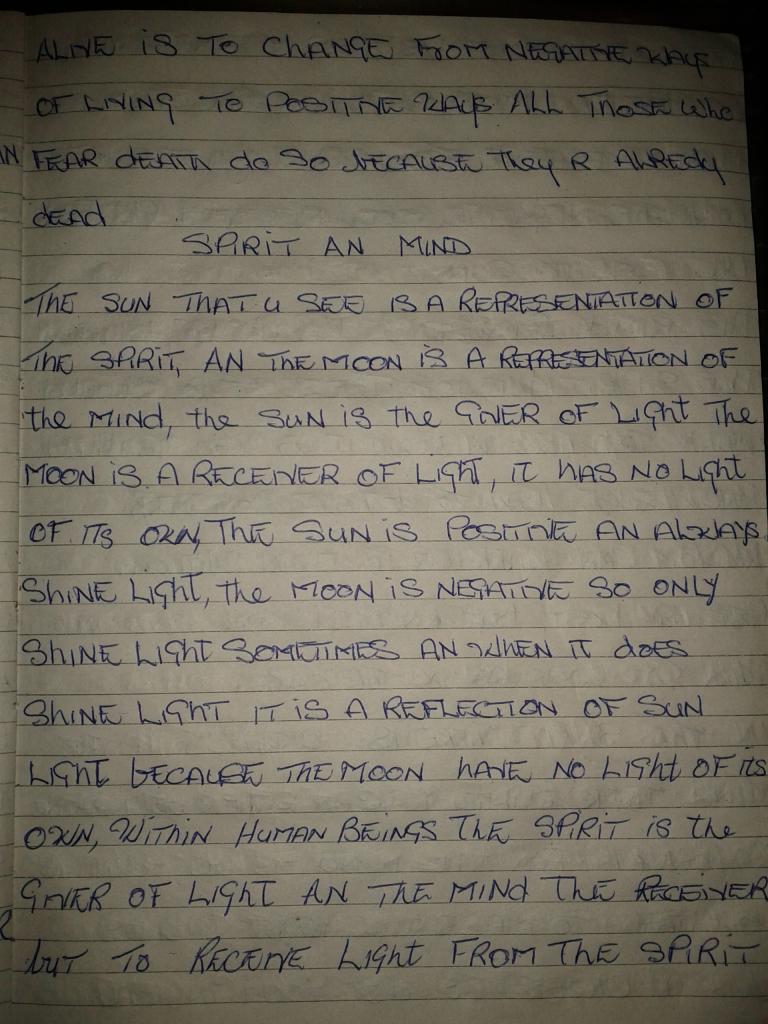 ALIVE IS TO CHANGE FROM NEGATIVE WAYS
OF LIVING TO POSITIVE WAYS ALL THOSE WHO
FEAR DEATH do SO bECAUSE They R ALREdy
dEAD
SPIRIT AN MIND
THE SUN THAT U SEE IS A REPRESENTATION OF
THE SPIRIT, AN THE MOON IS A REPRESENTATION OF
the MIND, the SUN IS the GIVER OF LIGHT THE
MOON IS A RECEIVER OF LIGHT, IT HAS NO LIGHT
OF ITS OWN, THE SUN IS POSITIVE AN ALWAYS
SHINE LIGHT, the MOON IS NEGATIVE SO ONLY
SHINE LIGHT SOMETIMES AN WHEN IT dOES
SHINE LIGHT IT IS A REFLECTION OF SUN
LIGHT bECAUSE THE MOON HAVE NO LIGHT OF ITS
OWN, WITHIN HUMAN BEINGS THE SPIRIT IS the
GIVER OF LIGHT AN THE MINd THE RECEIVER
bUT TO RECEIVE LIGHT FROM THE SPIRIT